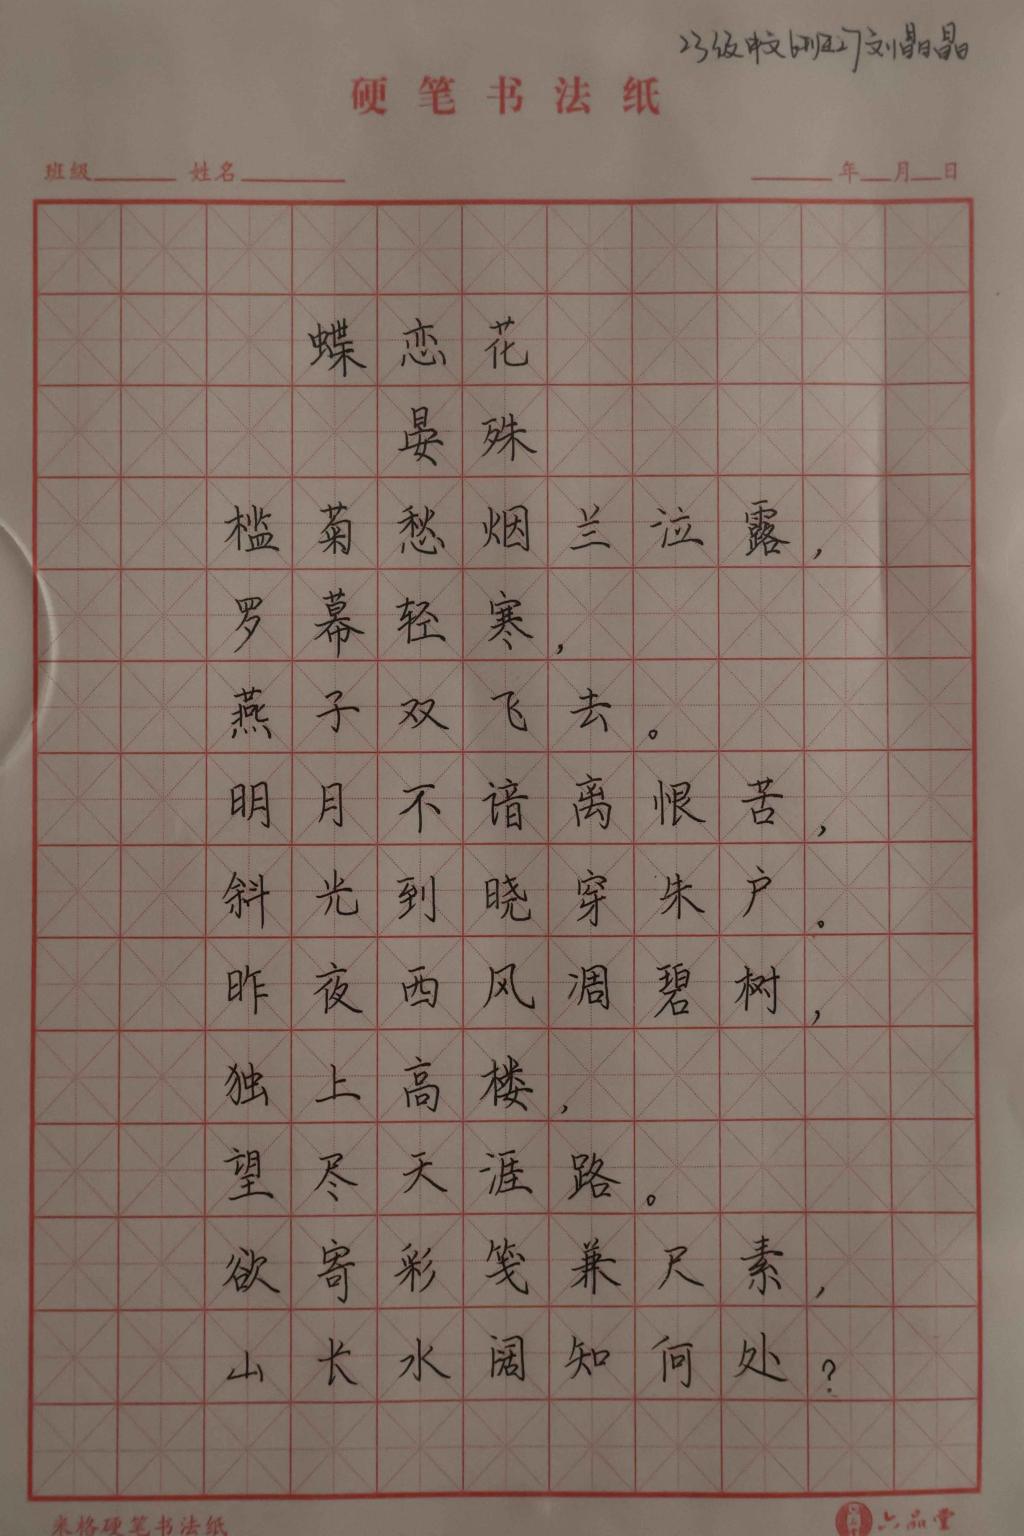 23级中文6班27刘晶晶
硬笔书法纸
班级 姓名 年 月 日
蝶恋花
晏殊
槛菊愁烟兰泣露,
罗幕轻寒,
燕子双飞去。
明月不谙离恨苦,
斜光到晓穿朱户。
昨夜西风凋碧树,
独上高楼,
望尽天涯路。
欲寄彩笺兼尺素,
山长水阔知何处?
米格硬笔书法纸 六品堂